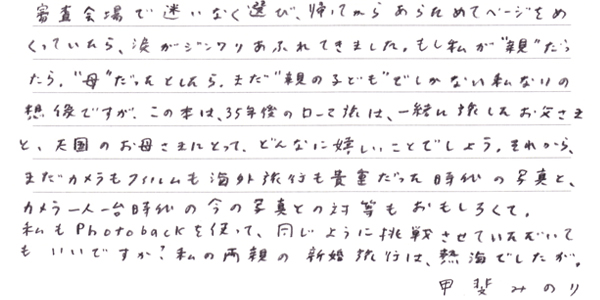 審査会場で迷いなく選び、帰ってからあらためてページをめ
くっていたら、涙がジンワリあふれてきました。もし私が“親”だっ
たら。“母”だったとしたら。まだ“親の子ども”でしかない私なりの
想像ですが、この本は、35年後のローマ旅は、一緒に旅したお父さま
と、天国のお母さまにとって、どんなに嬉しいことでしょう。それから、
まだカメラもフィルムも海外旅行も貴重だった時代の写真と、
カメラ一人一台時代の今の写真との対等もおもしろくて。
私もPhotobackを使って、同じように挑戦させていただいて
もいいですか？私の両親の新婚旅行は、熱海でしたが。
甲斐みのり